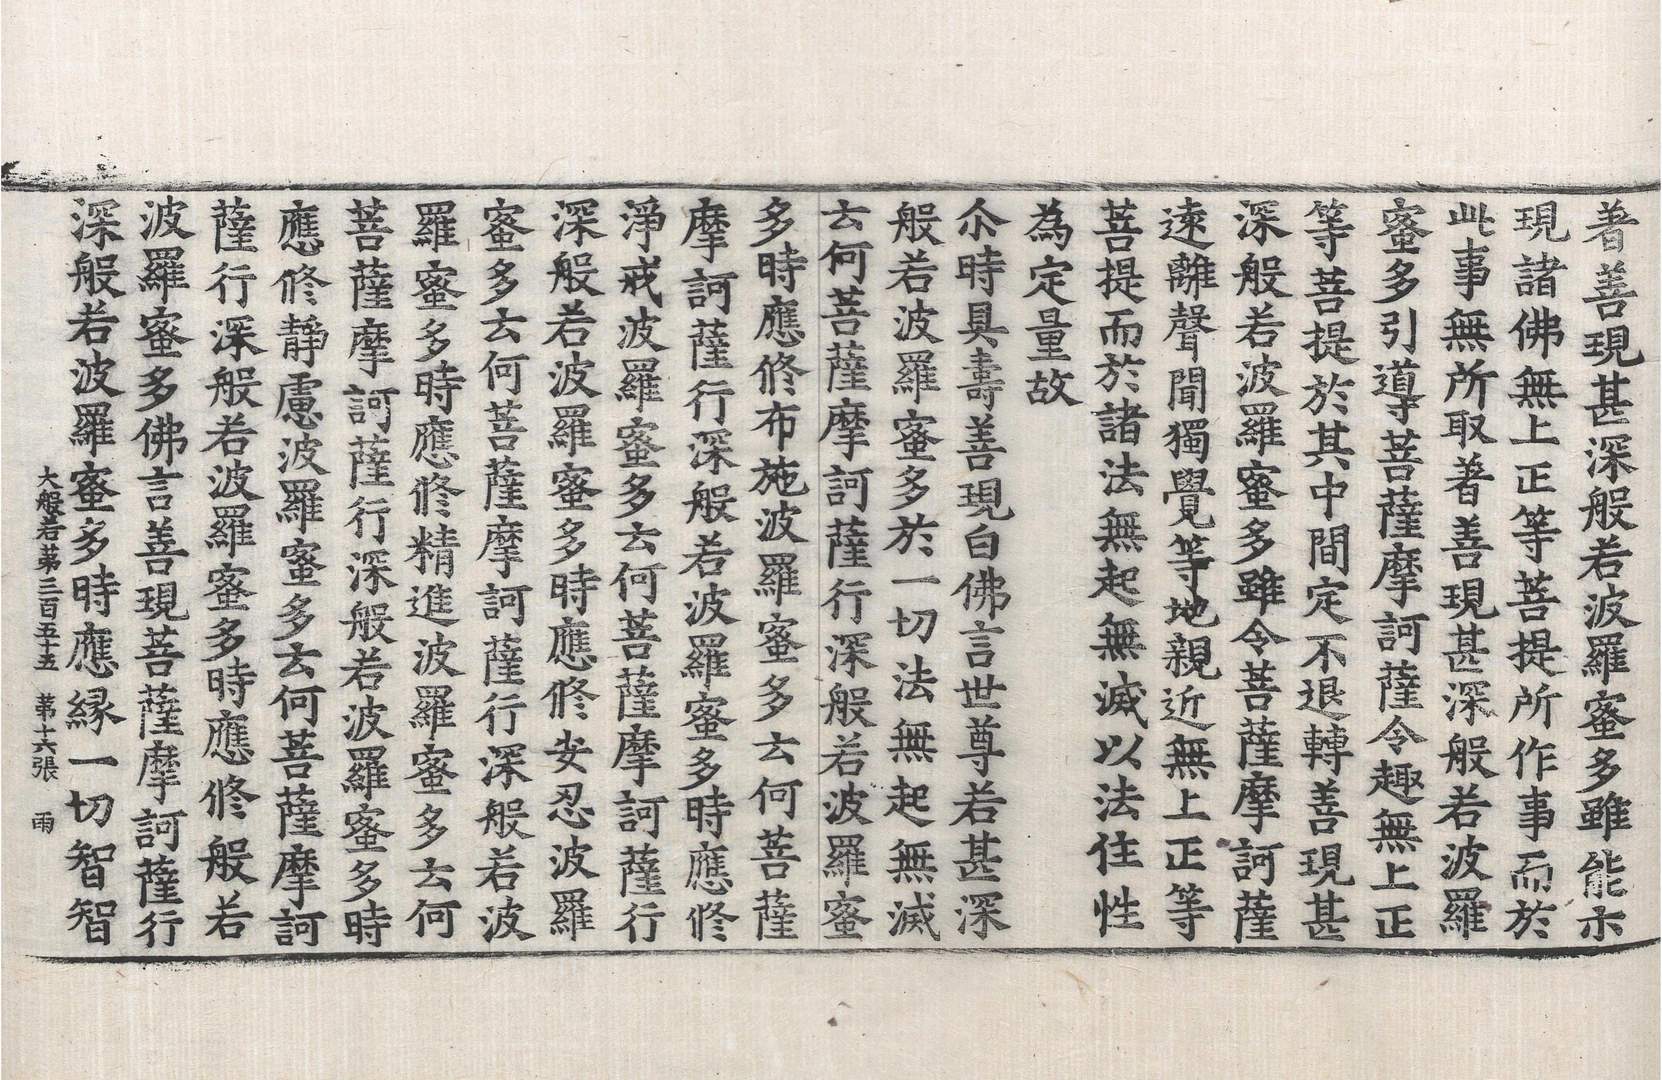 著善現甚深般若波羅蜜多雖能示
現諸佛無上正等菩提所作事而於
此事無所取著善現甚深般若波羅
蜜多引導菩薩摩訶薩令趣無上正
等菩提於其中間定不退轉善現甚
深般若波羅蜜多雖令菩薩摩訶薩
遠離聲聞獨覺等地親近無上正等
菩提而於諸法無起無滅以法住性
為定量故
尒時具壽善現白佛言世尊若甚深
般若波羅蜜多於一切法無起無滅
云何菩薩摩訶薩行深般若波羅蜜
多時應修布施波羅蜜多云何菩薩
摩訶薩行深般若波羅蜜多時應修
淨戒波羅蜜多云何菩薩摩訶薩行
深般若波羅蜜多時應修安忍波羅
蜜多云何菩薩摩訶薩行深般若波
羅蜜多時應修精進波羅蜜多云何
菩薩摩訶薩行深般若波羅蜜多時
應修靜慮波羅蜜多云何菩薩摩訶
薩行深般若波羅蜜多時應修般若
波羅蜜多佛言善現菩薩摩訶薩行
深般若波羅蜜多時應緣一切智智
大般若第三百五十五 第十六張 雨